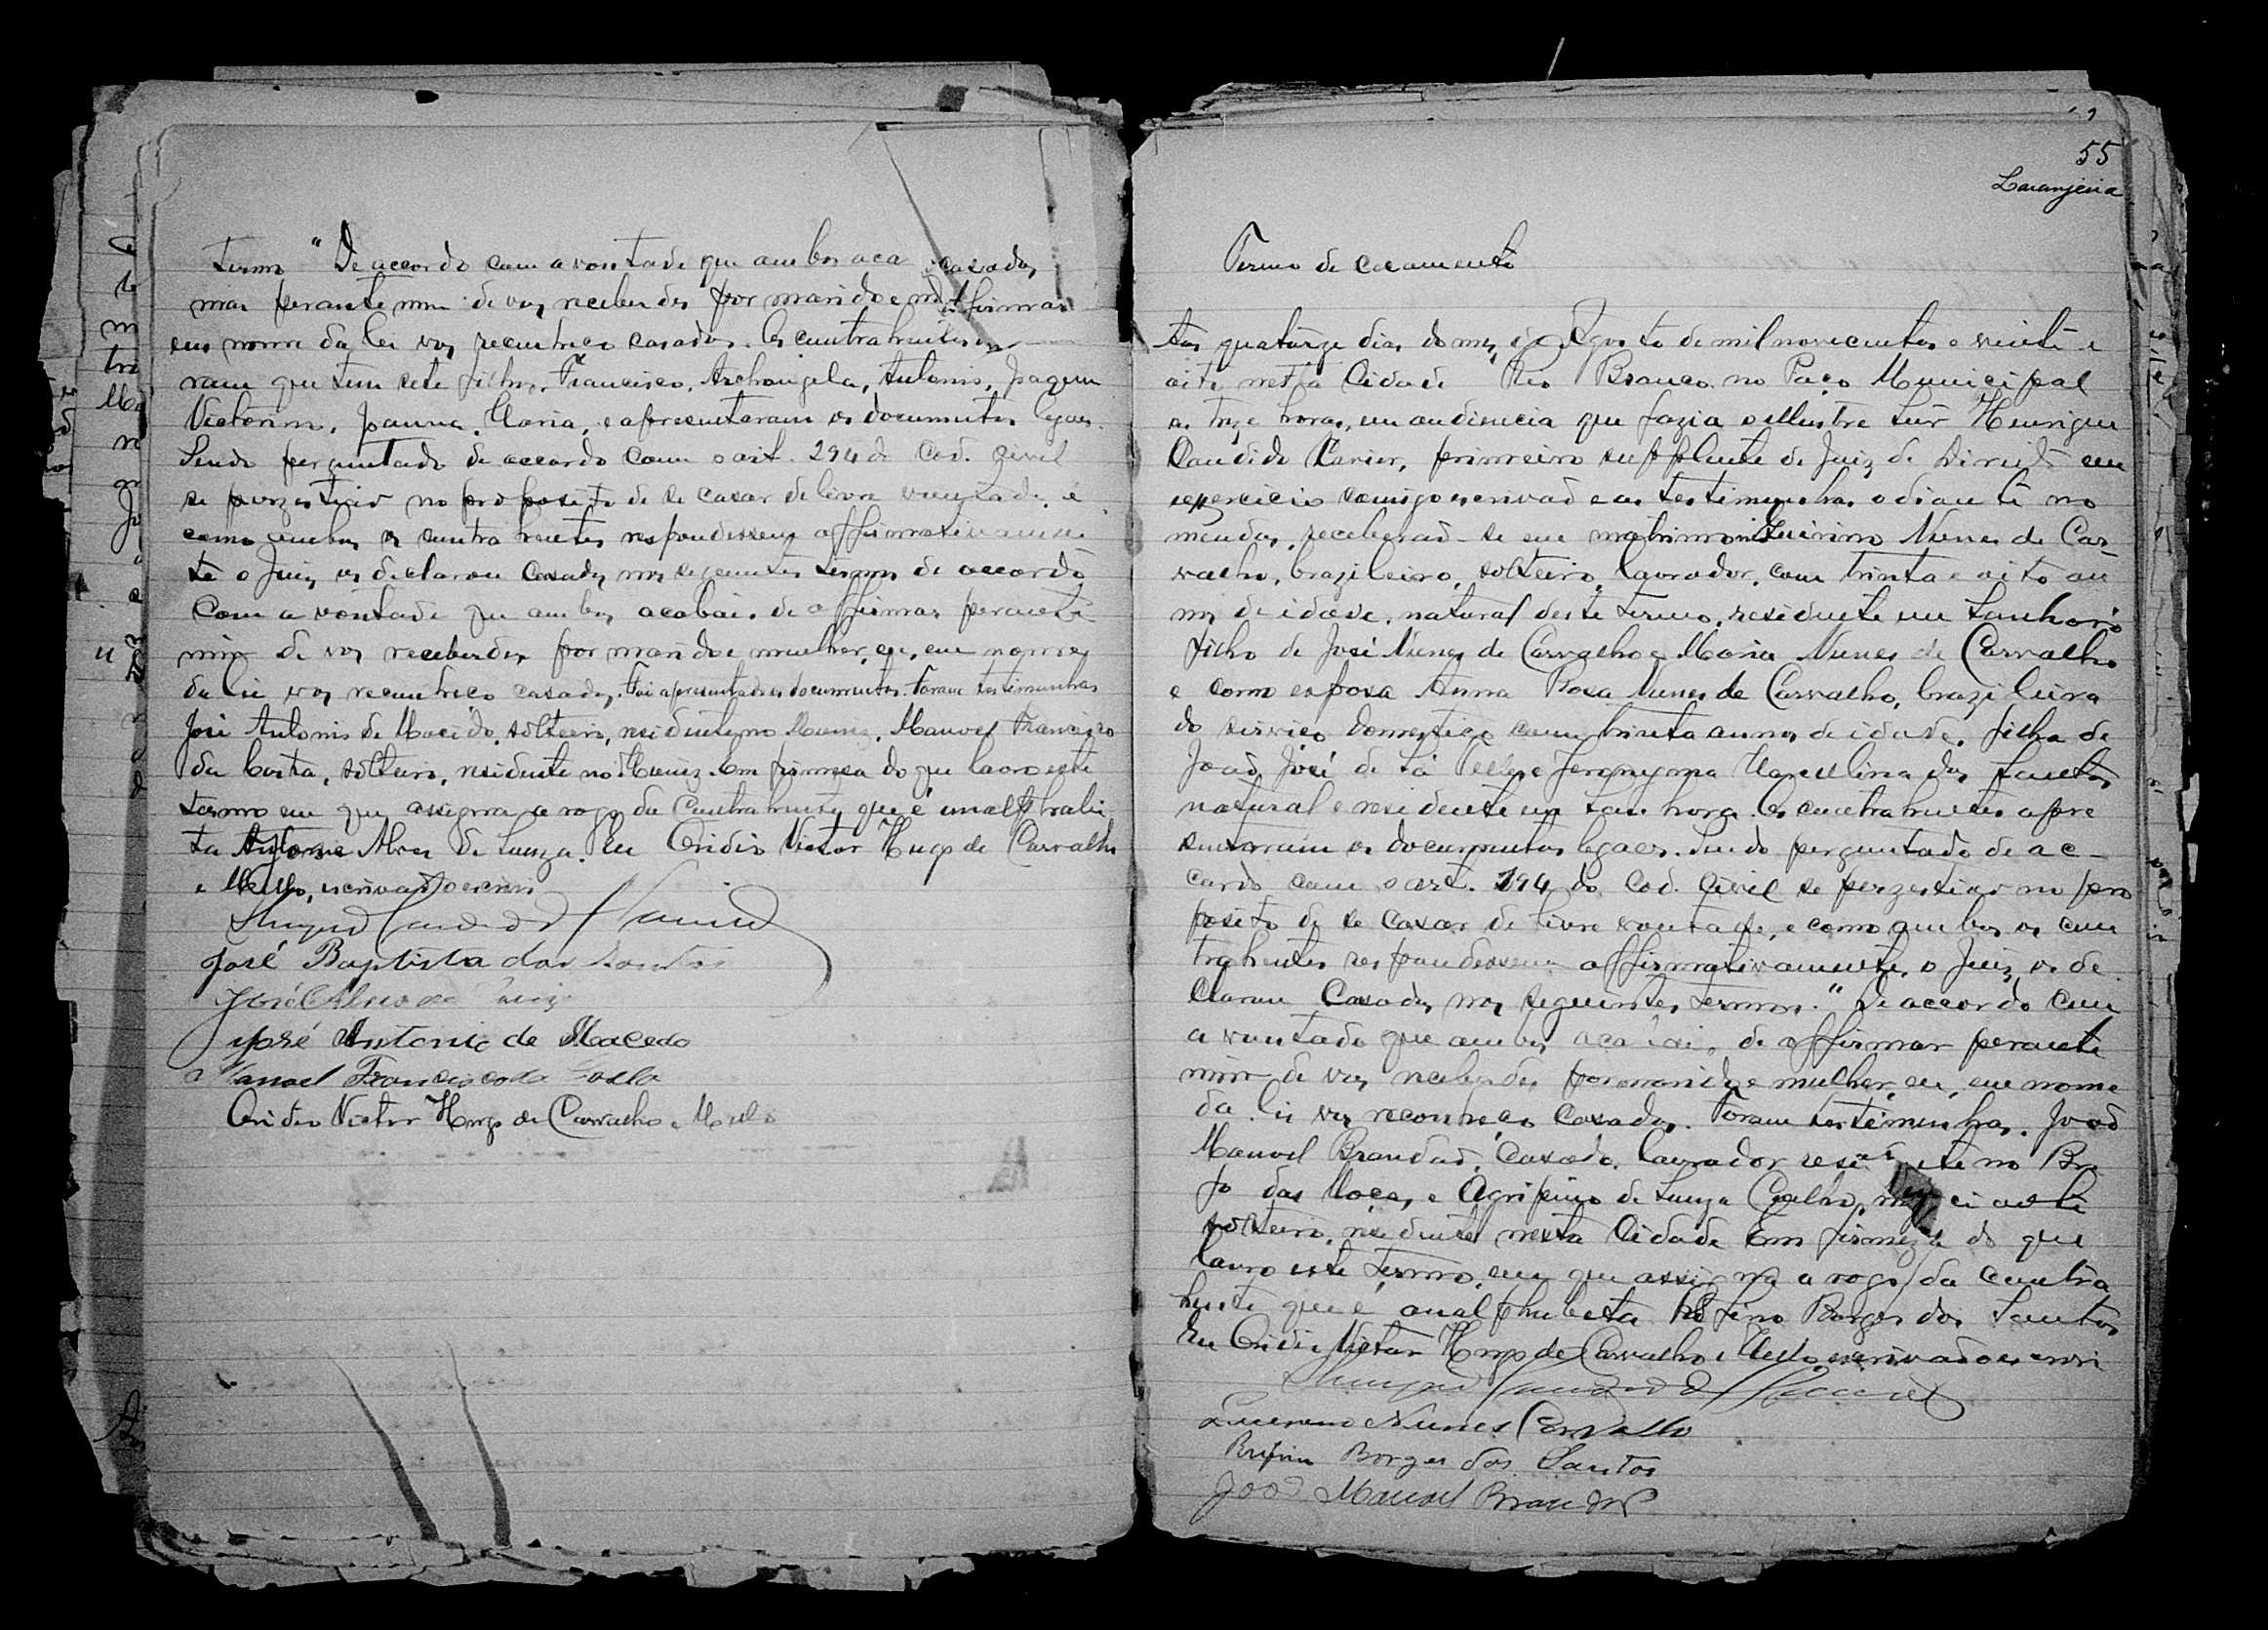 termo "De accordo com a vontade que ambos aca casados
mar perante mim de vos receberdes por marido e affirmar
em nome da lei vos reconheço casados. Os contrahentes
ram que tem sete filhos, Francisco, Archangela, Antonio, Joaquim
Victorino, Joanna, Maria, e apresentaram os documentos legaes.
Sendo perguntado de accordo com o art. 294 do Cod. Civil
se perzestiar no proposito de se casar de livre vontade, e
como ambos os contrahentes respondessem affirmativamen
te o Juiz os declarou casados nos seguintes termos de accordo
com a vontade que ambos acabais de affirmar perante
mim de vos receberdes por marido e mulher, eu, em nome
da lei vos reconheço casados. Foi apresentados os documentos. Foram testimunhas
José Antonio de Macêdo, solteiro, residente no Muniz, Manoel Francisco
da Costa, solteiro, residente no Muniz. Em firmeza do que lavro este
termo em que assigna a rogo da contrahente que é analphabe
ta Alves de Souza. Eu Ovidio Victor Hugo de Carvalho
e Mello, escrivão o escrevi
José Baptista dos Santos
José Alves de
José Antonio de Macedo
Manoel Francisco da Costa
Ovidio Victor Hugo de Carvalho e Mello
55
Laranjeira
Termo de casamento
Aos quatorze dias do mez de Agosto de mil novecentos e vinte e
oito nesta Cidade Rio Branco no Paço Municipal
as treze horas, em audiencia que fazia o illustre Snr Henrique
Candido primeiro supplente de Juiz de Direito em
exercicio comigo escrivão e as testimunhas adiante no
meadas, receberão-se em matrimonio Nunes de Car-
valho, brazileiro, solteiro, lavrador, com trinta e oito an
nos de idade, natural deste termo, residente em Sanharó
filho de José Nunes de Carvalho e Maria Nunes de Carvalho
e como esposa Anna Rosa Nunes de Carvalho, brazileira
do serviço domestico com trinta annos de idade, filha de
João José de Sá e Jeronyma Marcellina dos Santos
natural e residente em Sanharó. Os contrahentes apre
sentaram os documentos legaes. Sendo perguntado de ac-
cordo com o art. 194 do Cod. Civil se perzestiar no pro
posito de se casar de livre vontade, e como ambos os con
trahentes respondessem affirmativamente, o Juiz os de
clarou casados nos seguintes termos. "De accordo com
a vontade que ambos acabais de affirmar perante
mim de vos receberdes por marido e mulher, eu, em nome
da lei vos reconheço casados. Foram testimunhas, João
Manoel Brandão, casado, lavrador residente no Bre
jo das Moças, e Agripino de Souza Coelho,
solteiro, residente nesta Cidade Em firmeza do que
lavro este termo, em que assigna a rogo da contra
hente que é analphabeta Rufino Borges dos Santos
Eu Ovidio Victor Hugo de Carvalho e Mello, escrivão o escrevi
Nunes Carvalho
Rufino Borges dos Santos
João Manoel Brandão